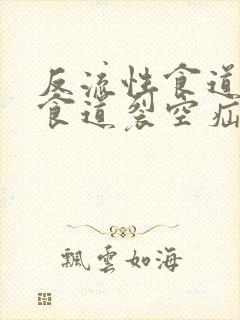 反流性食道
食道裂空疝
飘雲如海